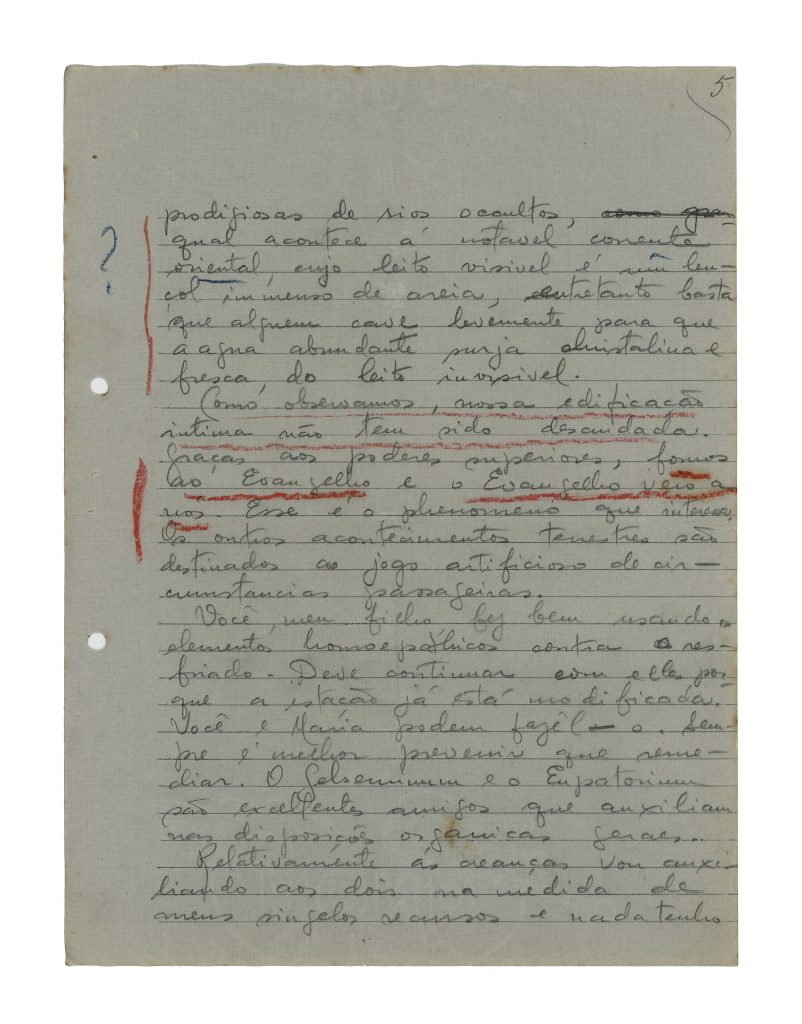 5
prodigiosas de rios occultos, como gran
qual acontece á notavel corrente
oriental, cujo leito visivel é um len-
çol immenso de areia, entretanto basta
que alguem cave levemente para que
a agua abundante surja christalina e
fresca, do leito invisivel.
Como observamos, nossa edificação
intima não tem sido descuidada.
Graças aos poderes superiores, fomos
ao Evangelho e o Evangelho veio a
nós. Esse é o phenomeno que interessa.
Os outros acontecimentos terrestres são
destinados ao jogo artificioso de cir-
cumstancias passageiras.
Você, meu filho, fez bem usando os
elementos homoepáthicos contra o res-
friado. Deve continuar com elles por-
que a estação já está modificada.
Você e Maria podem fazêl-o. Sem-
pre é melhor prevenir que reme-
diar. O Gelseminum e o Eupatorium
são excellentes amigos que auxiliam
nas disposições organicas geraes..
Relativamente ás creanças vou auxi-
liando aos dois na medida de
meus singelos recursos e nada tenho
?